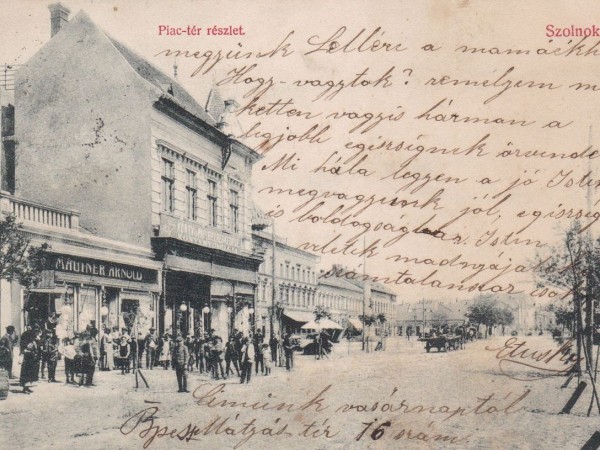 Piac-tér részlet.
Szolnok
megyünk Lellére a mamáékh
Hogy-vagytok? remélyem m
ketten vagyis hárman a
legjobb egészségnek örvende
Mi hála legyen a jó Isten
megvagyunk jól, egészség
és boldogságban. Isten
veletek
számtalanszor csók
MAUTNER ARNOLD
Etuska
Címünk vasárnaptól
Bpest Mátyás tér 16 szám.